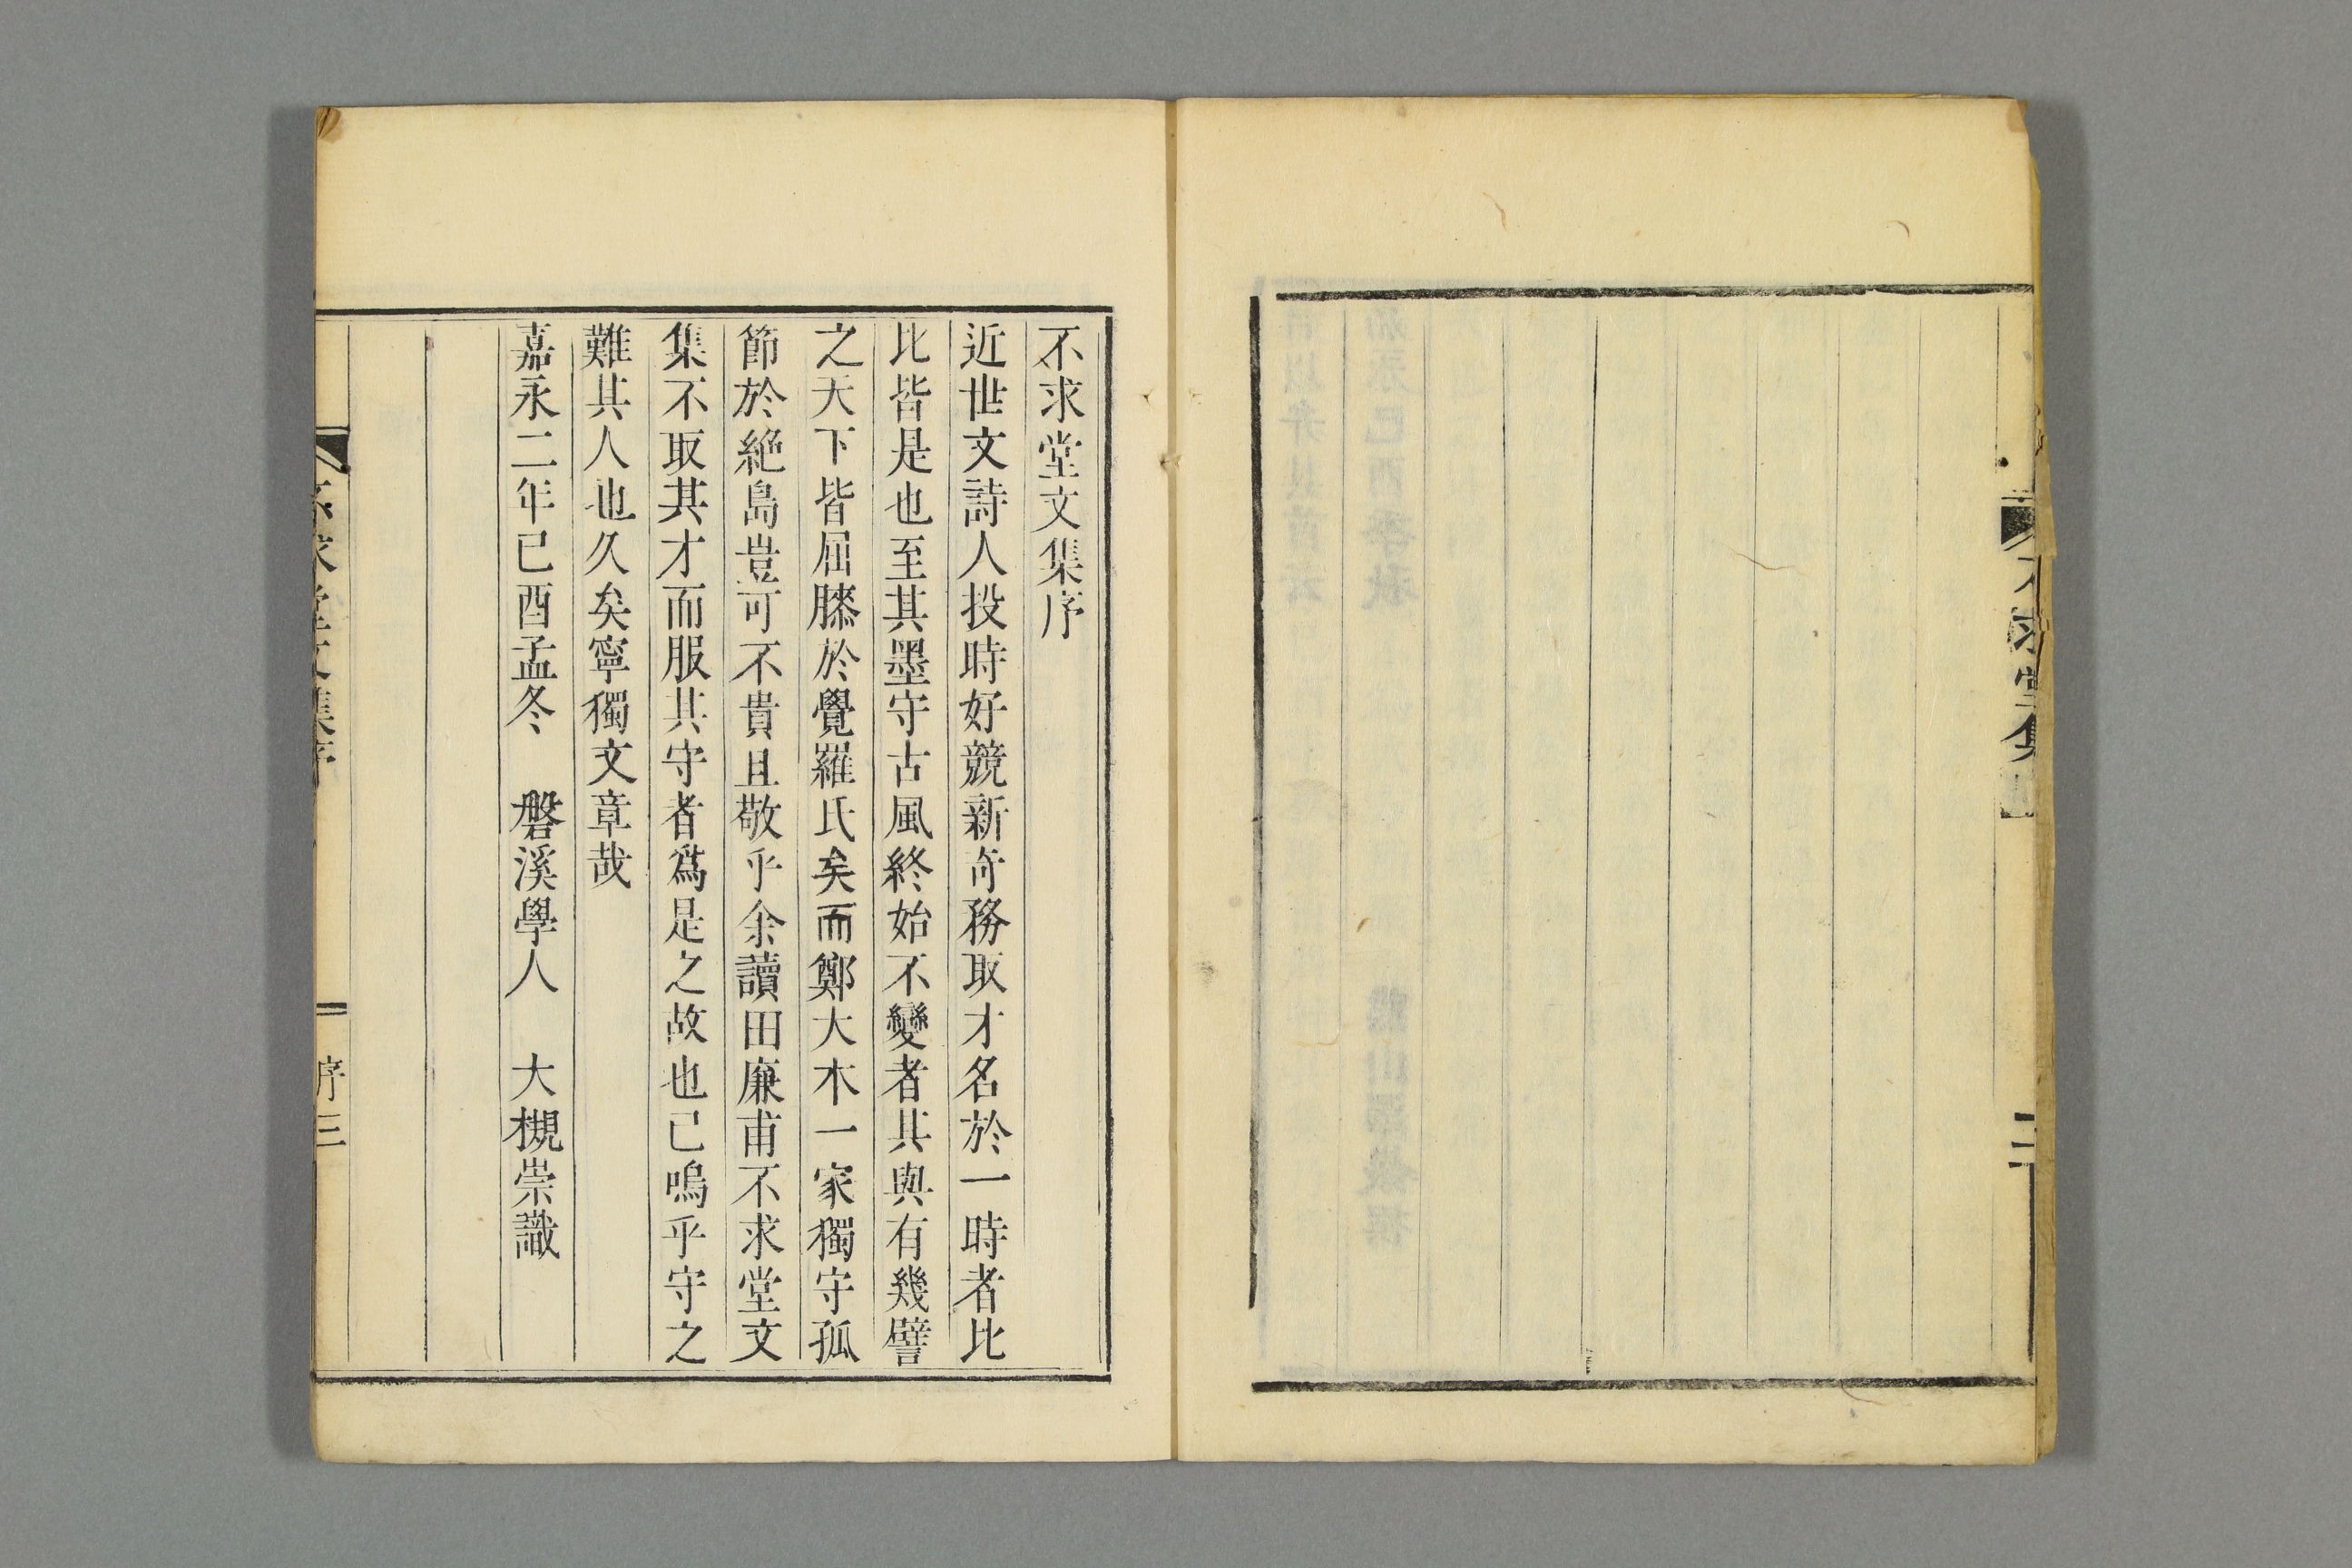 不求堂文集序
近世文詩人投時好競新奇務取才名於一時者比
比皆是也至其墨守古風終始不變者其與有幾譬
之天下皆屈膝於覺羅氏矣而鄭大木一家獨守孤
節於絶島豈可不貴且敬乎余讀田廉甫不求堂文
集不取其才而服其守者爲是之故也已嗚乎守之
難其人也久矣寧獨文章哉
嘉永二年已酉孟冬　磐溪學人　大槻崇識
不求堂文集序
序三